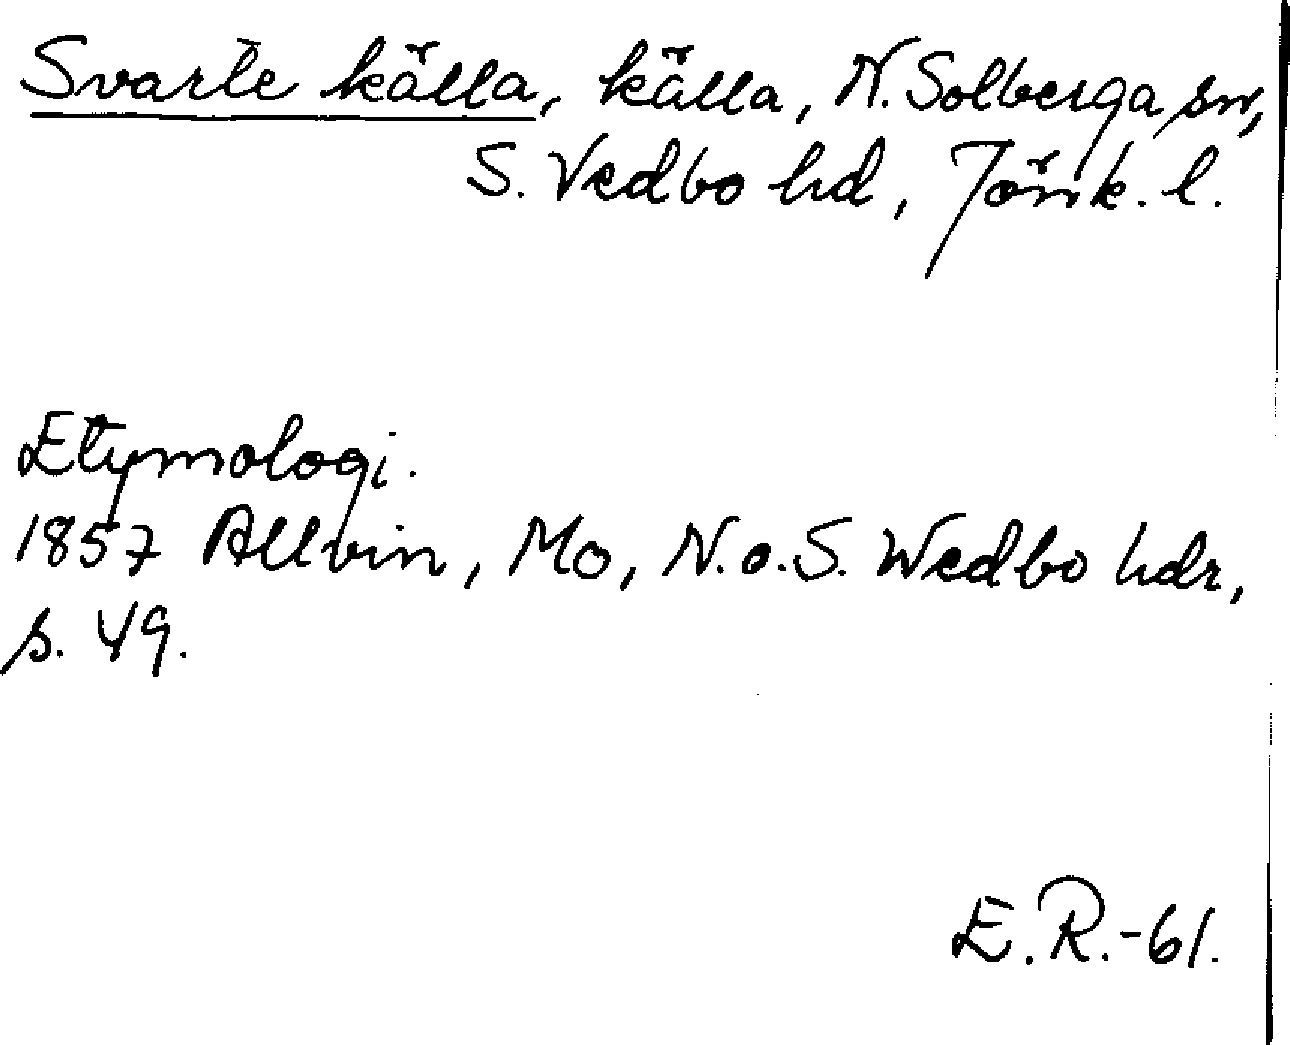 Svarte källa, källa, N. Solberga sn,
S. Vedbo hd, Jönk. l.
Etymologi.
1857 Allvin, Mo, N. o. S. Wedbo hdr,
s. 49.
E. R. -61.